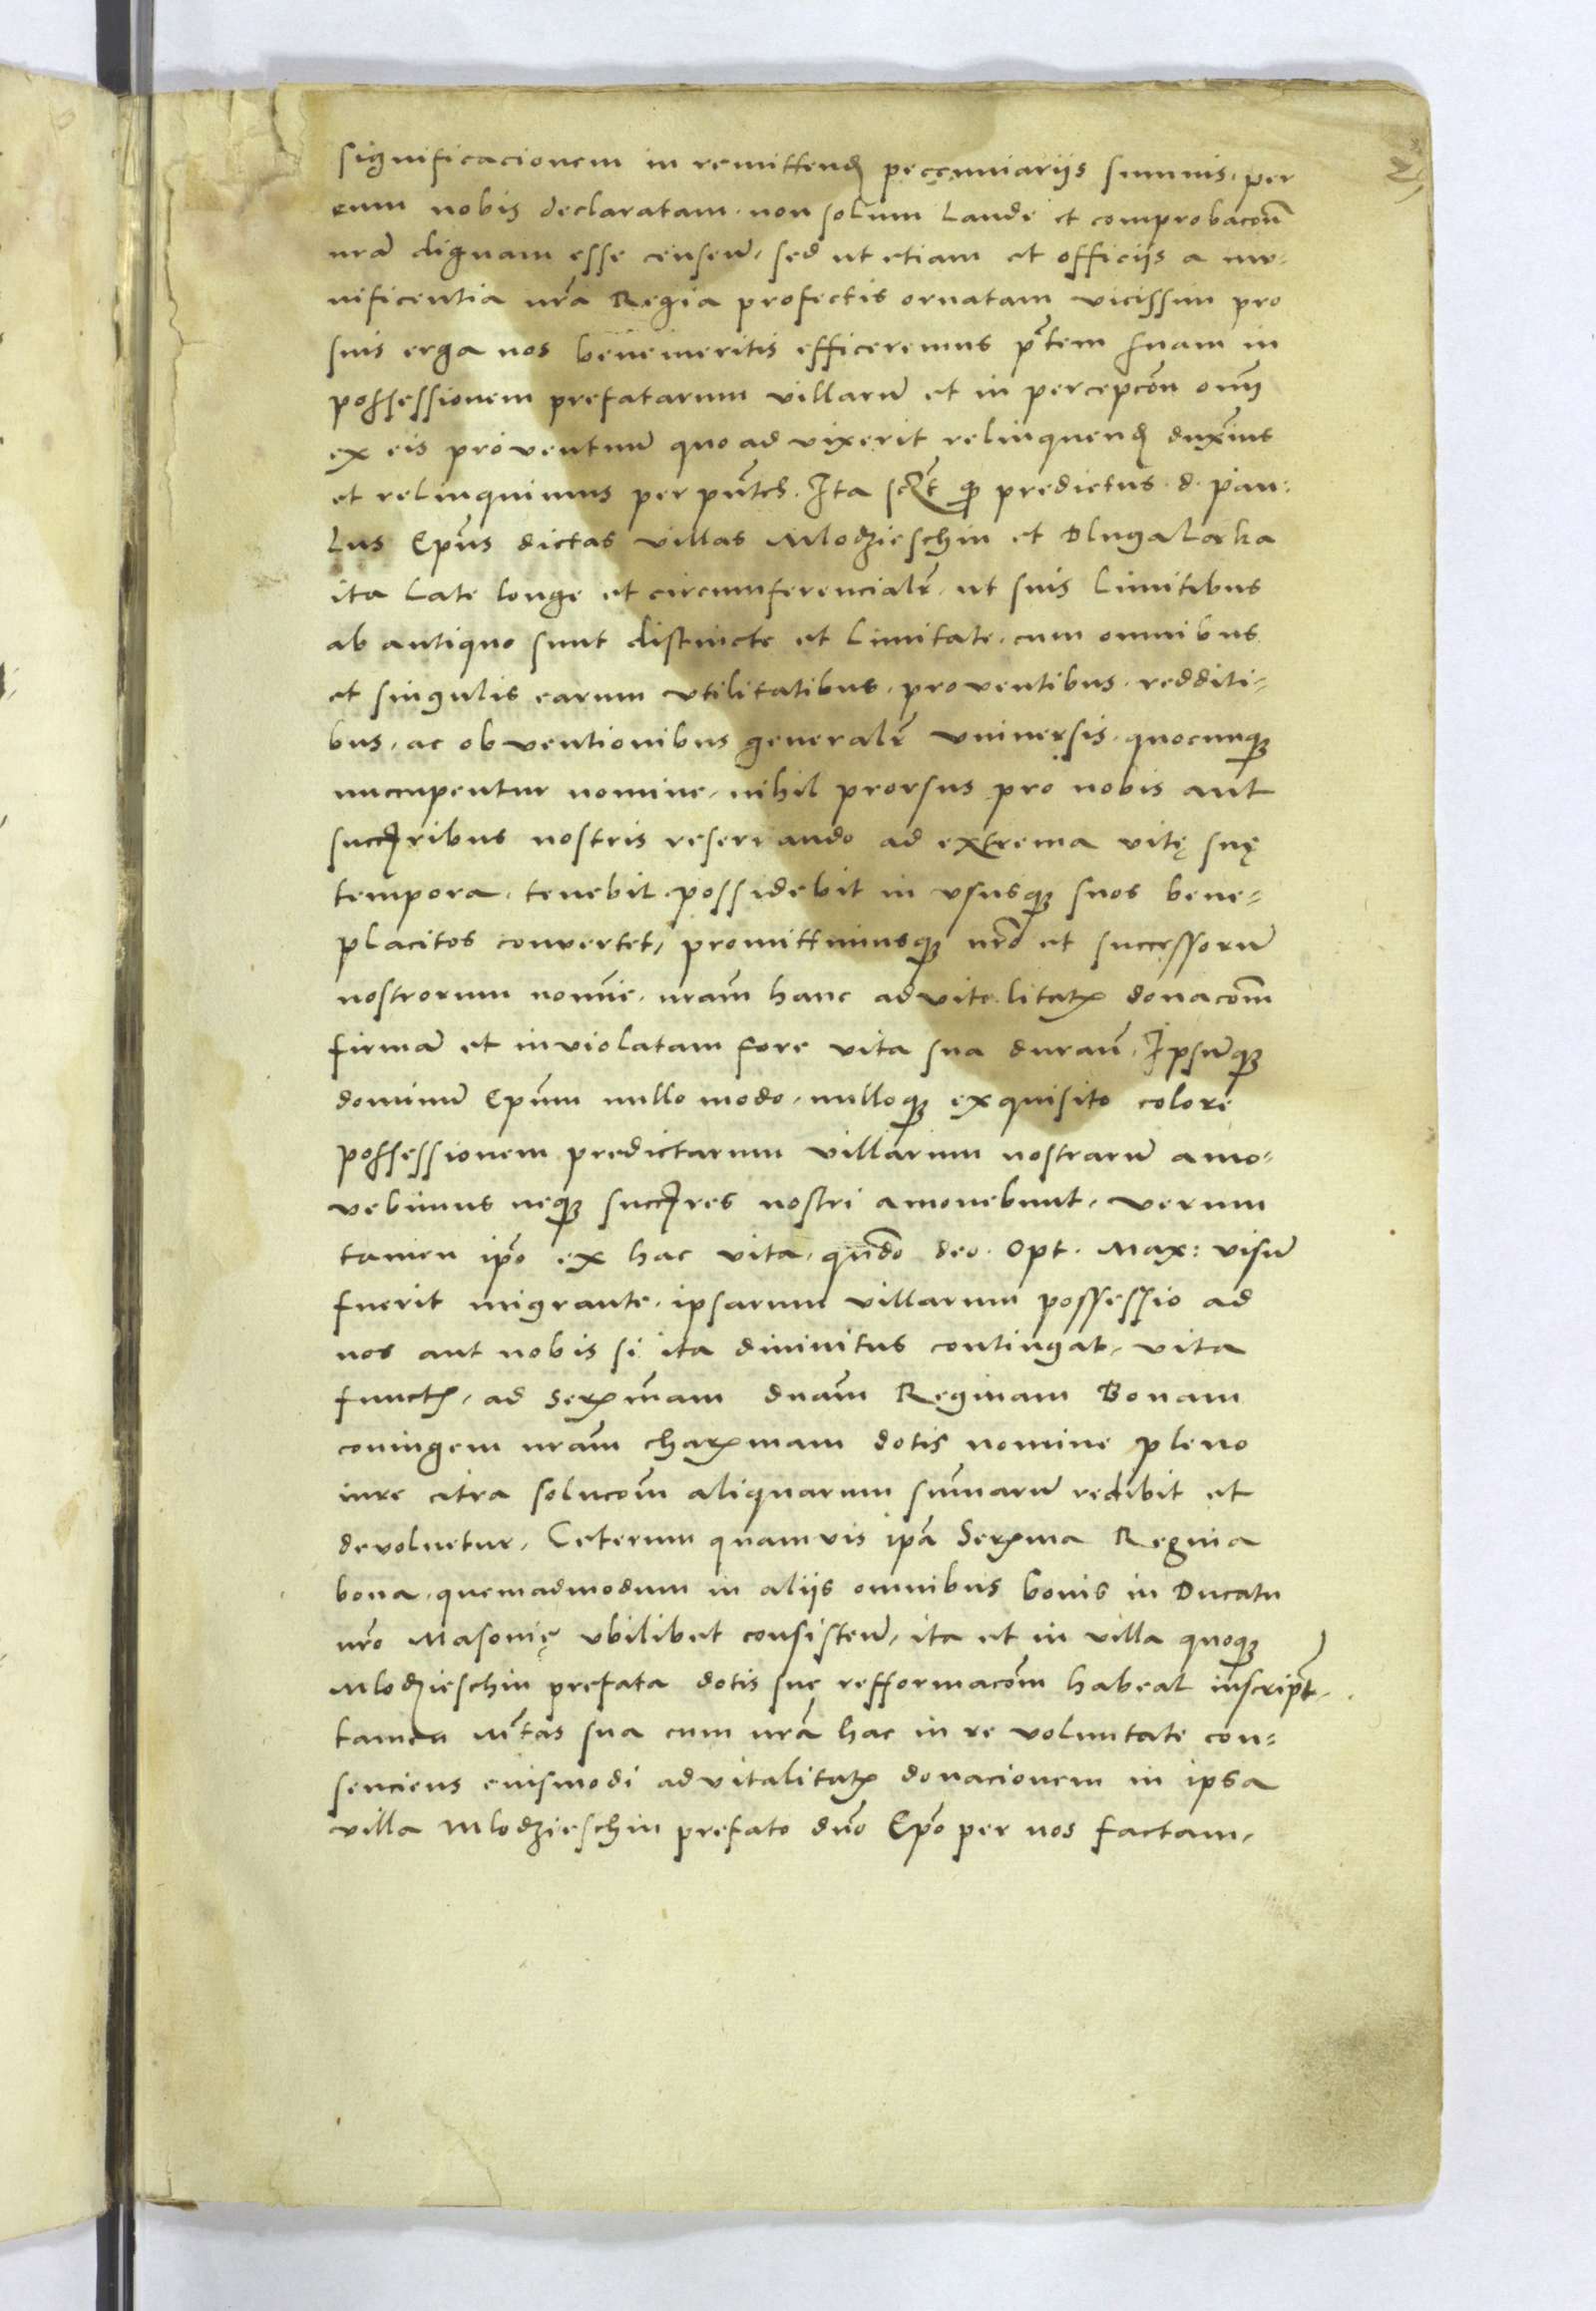 2
significacionem in remittend peccuniariis summis, per
eum nobis declaratam, non solum laude et comprobacoñ
nr̃a dignam esse censeũ, sed ut etiam et officiis a mu-
nificentia nr̃a Regia profectis ornatam vicissim pro
suis erga nos benemeritis efficeremus p̃tem suam in
possessionem prefatarum villarũ et in percepcõn om̃
ex eis proventuũ quoad vixerit relinquend dux̃imus
et relinquimus per pñtes. Ita sclt̃ qp predictus d. Pau:
lus Ep̃us dictas villas Mlodzieschin et Dlugalaka
ita late longe et circumferencialr̃, ut suis limitibus
ab antiquo sunt distincte et limitate, cum omnibus
et singulis earum vtilitatibus, proventibus, redditi-
bus, ac obventionibus generalr̃ vniuersis, quocunqꝫ
nuccupentur nomine, nihil prorsus pro nobis aut
succꝫribus nostris reseruando ad extrema vitę suę
tempora, tenebit possidebit in vsusqꝫ suos bene-
placitos convertet, promittimusqꝫ nr̃o et successorũ
nostrorum nom̃ie, nram̃ hanc advitalitatꝫ donacom̃
firmã et inviolatam fore vita sua durañ, Ipsumqꝫ
dominũ Ep̃um nullo modo, nulloqꝫ exquisito colore
possessionem predictarum villarum nostrarũ amo-
vebimus neqꝫ succꝫres nostri amouebunt, verum
tamen ip̃o ex hac vita, quñdo deo. Opt. Max: visũ
fuerit migrante, ipsarum villarum possessio ad
nos aut nobis si ita diuinitus contingat, vita
functꝭ, ad Serꝫm̃am dnam̃ Reginam Bonam
coniugem nram̃ charꝫmam dotis nomine pleno
iure citra solucom̃ aliquarum sum̃arũ redibit et
devoluetur, Ceterum quamvis ip̃a Serꝫma Regina
bona, quemadmodum in aliis omnibus bonis in Ducatu
nr̃o Masouię vbilibet consisteñ, ita et in villa quoqꝫ
Mlodzieschin prefata dotis suę refformacom̃ habeat inscript̃,
tamen M̃tas sua cum nr̃a hac in re voluntate con-
senciens euismodi advitalitatꝫ donacionem in ipsa
villa Mlodzieschin prefato dño Ep̃o per nos factam,